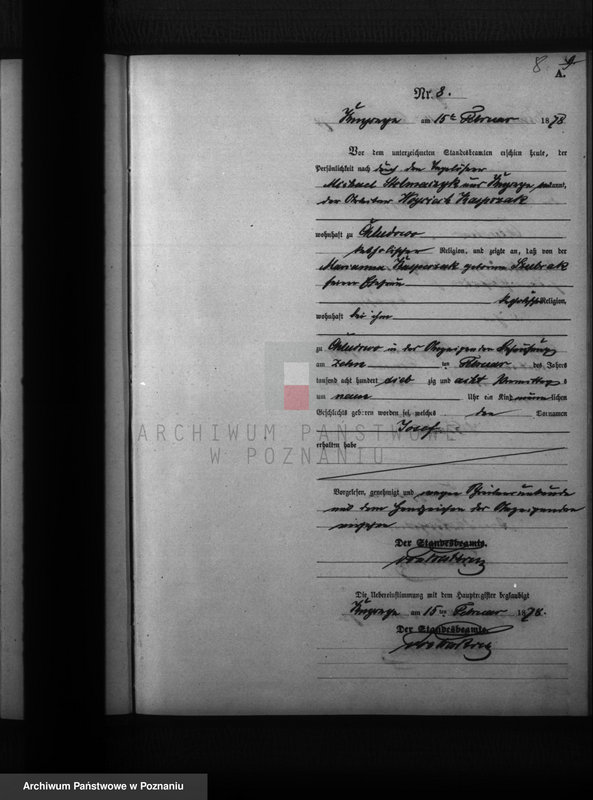 8. 9
A.
Nr. 8.
am 15ten Februar 1878
Vor dem unterzeichneten Standesbeamten erschien heute, der
Persönlichkeit nach durch den Tagelöhner
Michael Stelmaszyk aus bekannt,
der Arbeiter Woyciech Kasprzak
wohnhaft zu Chludowo
katholischer Religion, und zeigte an, daß von der
Marianna Kasprzak geborene
seiner Ehefrau
katholischer Religion,
wohnhaft bei ihm
zu Chludowo in der Behausung
am zehn ten Februar des Jahres
tausend acht hundert sieb zig und acht Vormittag s
um neun Uhr ein Kind männlichen
Geschlechts geboren worden sei, welches den Vornamen
Josef
erhalten habe
ARCHIWUM PAŃSTWOWE
W POZNANIU
Vorgelesen, genehmigt und wegen Schreibensunkunde
mit dem Handzeichen des Anzeigenden
versehen
Der Standesbeamte.
Die Uebereinstimmung mit dem Hauptregister beglaubigt
am 15ten Februar 1878.
Der Standesbeamte.
Archiwum Państwowe w Poznaniu